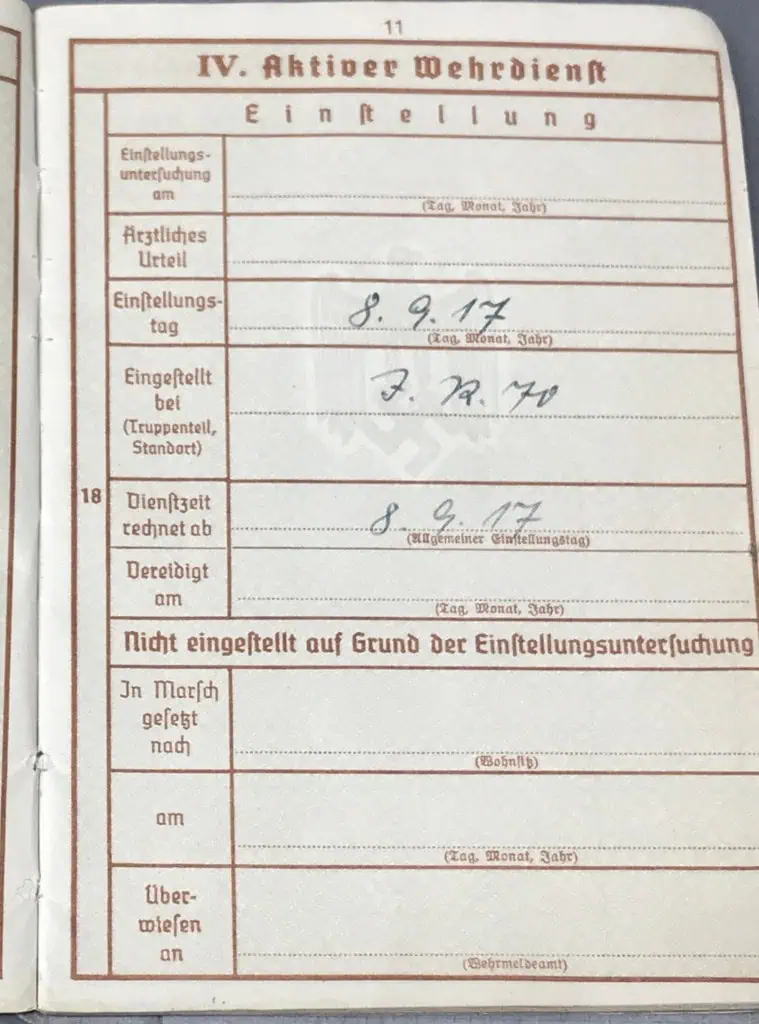 11
IV. Aktiver Wehrdienst
Einstellung
Einstellungs-
untersuchung
am
(Tag, Monat, Jahr)
Ärztliches
Urteil
Einstellungs-
tag
8. 9. 17
(Tag, Monat, Jahr)
Eingestellt
bei
(Truppenteil,
Standort)
J. R. 70
18
Dienstzeit
rechnet ab
8. 9. 17
(Allgemeiner Einstellungstag)
Vereidigt
am
(Tag, Monat, Jahr)
Nicht eingestellt auf Grund der Einstellungsuntersuchung
In Marsch
gesetzt
nach
(Wohnsitz)
am
(Tag, Monat, Jahr)
Über-
wiesen
an
(Wehrmeldeamt)